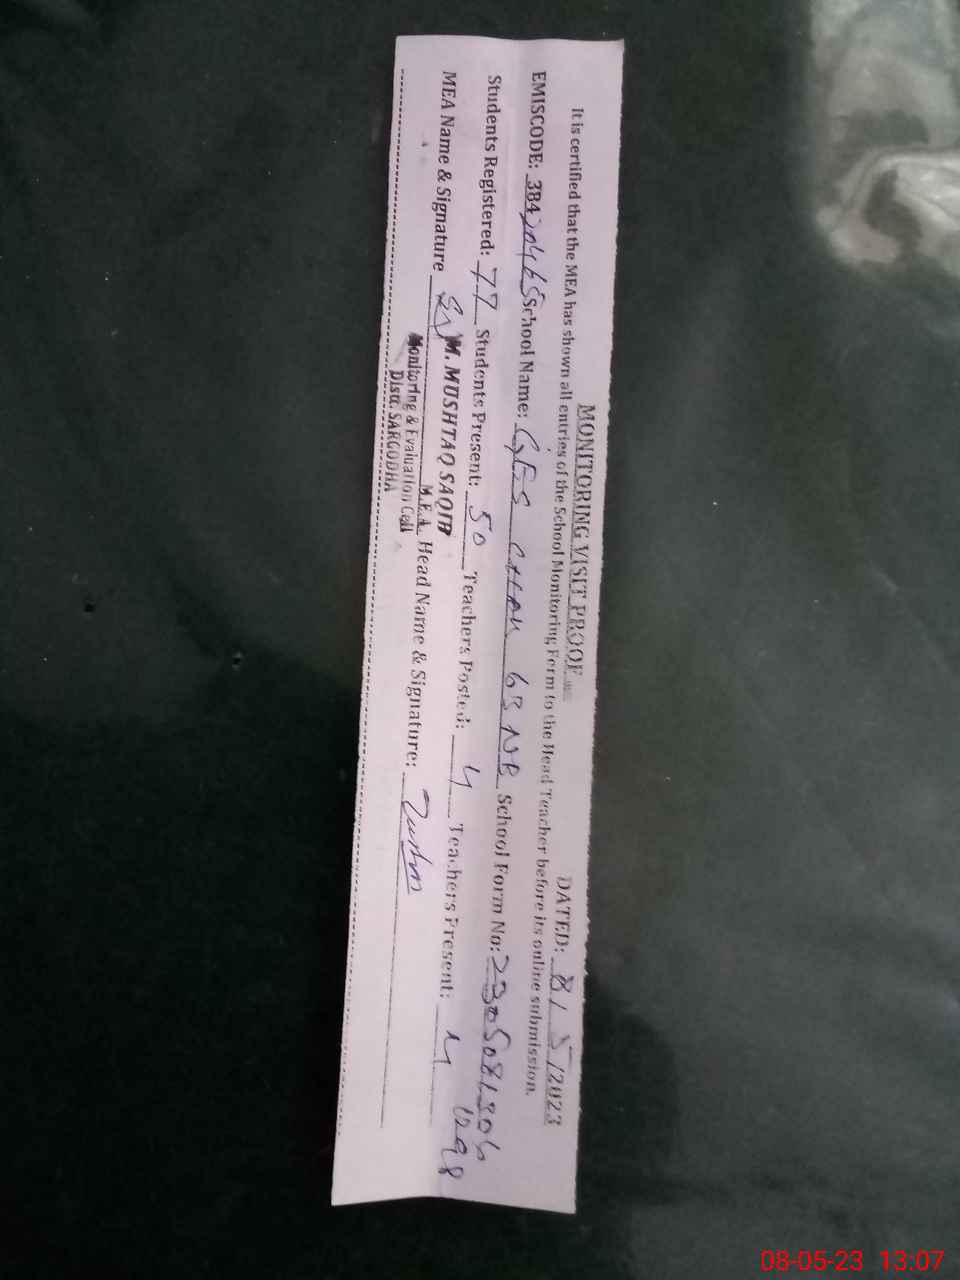 MONITORING VISIT PROOF DATED: 8/5/2023
It is certified that the MEA has shown all entries of the School Monitoring Form to the Head Teacher before its online submission.
EMISCODE: 38420465 School Name: GES CHAK 63 NB School Form No: 2305081306
1298
Students Registered: 77 Students Present: 50 Teachers Posted: 4 Teachers Present: 4
MEA Name & Signature M. MUSHTAQ SAQIB Head Name & Signature:
M.E.A.
Monitoring & Evaluation Cell
Distt. SARGODHA
08-05-23 13:07